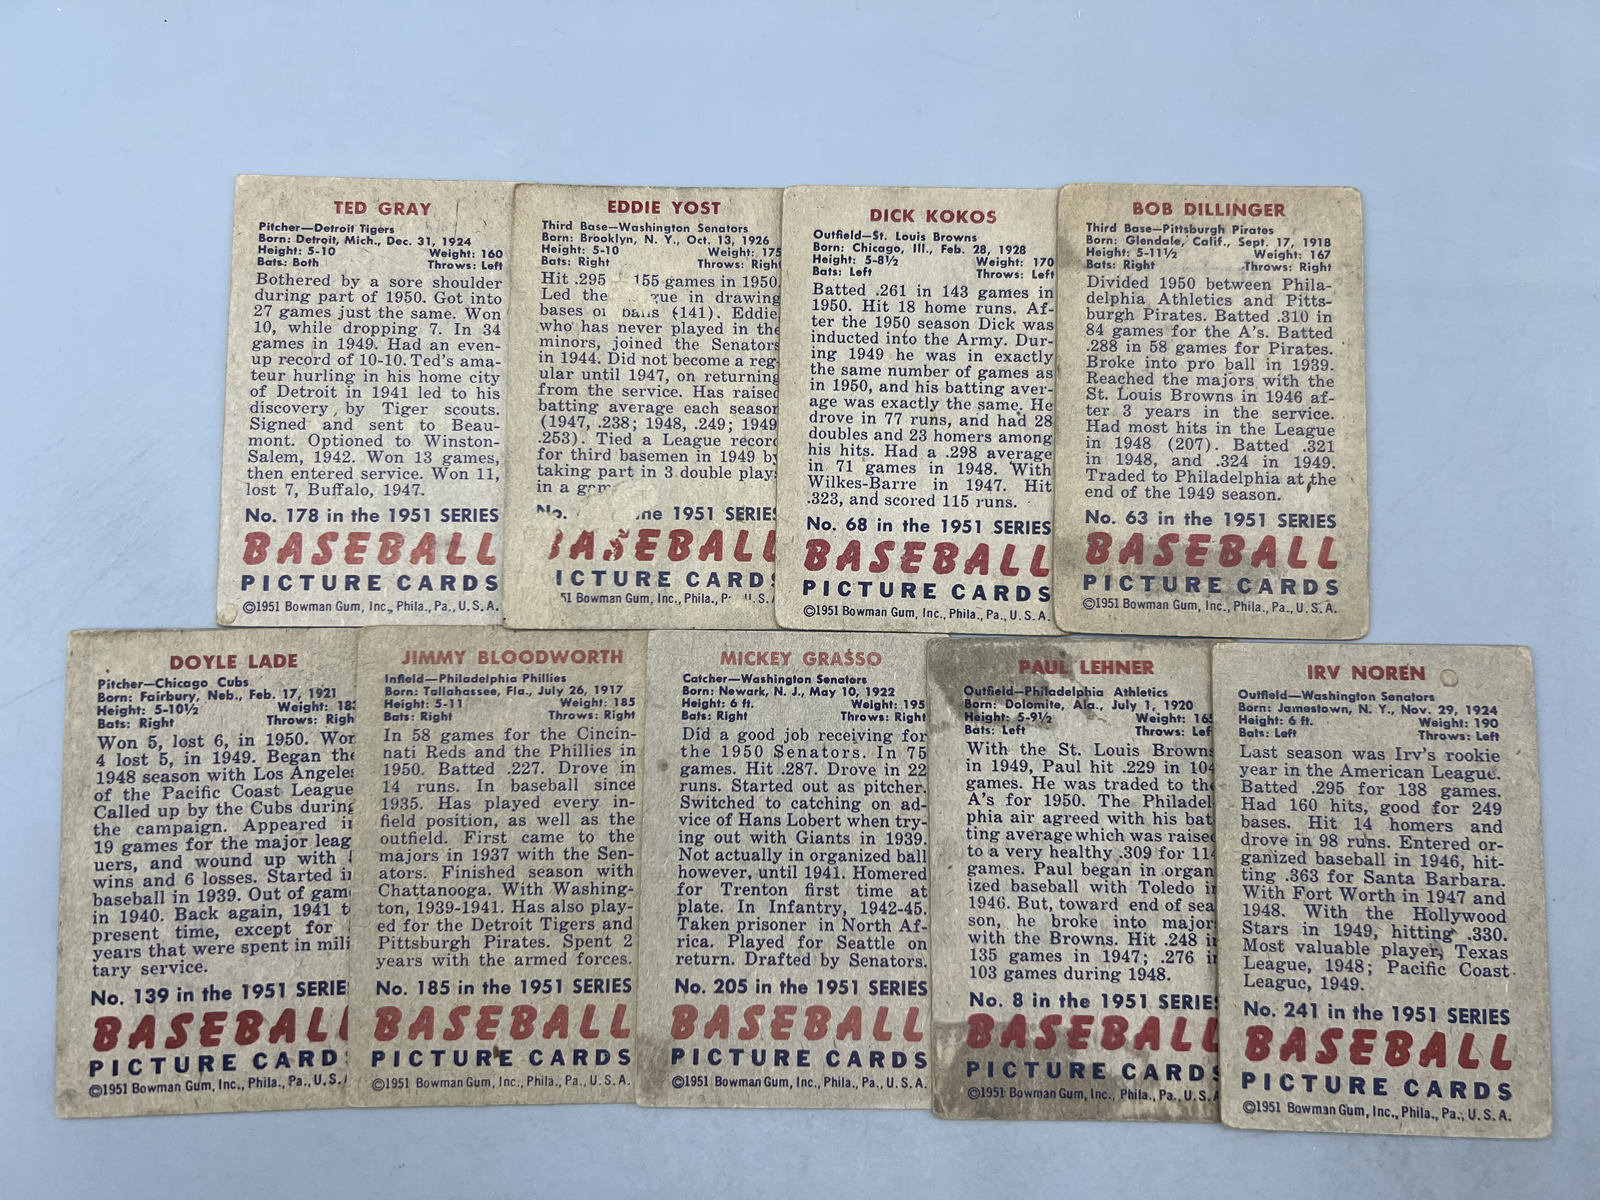 TED GRAY
Pitcher—Detroit Tigers
Born: Detroit, Mich., Dec. 31, 1924
Height: 5-10 Weight: 160
Bats: Both Throws: Left
Bothered by a sore shoulder
during part of 1950. Got into
27 games just the same. Won
10, while dropping 7. In 34
games in 1949. Had an even-
up record of 10-10. Ted's ama-
teur hurling in his home city
of Detroit in 1941 led to his
discovery by Tiger scouts.
Signed and sent to Beau-
mont. Optioned to Winston-
Salem, 1942. Won 13 games,
then entered service. Won 11,
lost 7, Buffalo, 1947.
No. 178 in the 1951 SERIES
BASEBALL
PICTURE CARDS
©1951 Bowman Gum, Inc., Phila., Pa., U.S.A.
EDDIE YOST
Third Base—Washington Senators
Born: Brooklyn, N. Y., Oct. 13, 1926
Height: 5-10 Weight: 175
Bats: Right Throws: Right
Hit .295 155 games in 1950.
Led the gue in drawing
bases balls (141). Eddie
who has never played in the
minors, joined the Senators
in 1944. Did not become a reg-
ular until 1947, on returning
from the service. Has raised
batting average each season
(1947, .238; 1948, .249; 1949
.253). Tied a League record
for third basemen in 1949 by
taking part in 3 double plays
in a
No. 1951 SERIES
BASEBALL
ICTURE CARDS
51 Bowman Gum, Inc., Phila., U.S.A.
DICK KOKOS
Outfield—St. Louis Browns
Born: Chicago, Ill., Feb. 28, 1928
Height: 5-8½ Weight: 170
Bats: Left Throws: Left
Batted .261 in 143 games in
1950. Hit 18 home runs. Af-
ter the 1950 season Dick was
inducted into the Army. Dur-
ing 1949 he was in exactly
the same number of games as
in 1950, and his batting aver-
age was exactly the same. He
drove in 77 runs, and had 28
doubles and 23 homers among
his hits. Had a .298 average
in 71 games in 1948. With
Wilkes-Barre in 1947. Hit
.323, and scored 115 runs.
No. 68 in the 1951 SERIES
BASEBALL
PICTURE CARDS
©1951 Bowman Gum, Inc., Phila., Pa., U.S.A.
BOB DILLINGER
Third Base—Pittsburgh Pirates
Born: Glendale, Calif., Sept. 17, 1918
Height: 5-11½ Weight: 167
Bats: Right Throws: Right
Divided 1950 between Phila-
delphia Athletics and Pitts-
burgh Pirates. Batted .310 in
84 games for the A's. Batted
.288 in 58 games for Pirates.
Broke into pro ball in 1939.
Reached the majors with the
St. Louis Browns in 1946 af-
ter 3 years in the service.
Had most hits in the League
in 1948 (207). Batted .321
in 1948, and .324 in 1949.
Traded to Philadelphia at the
end of the 1949 season.
No. 63 in the 1951 SERIES
BASEBALL
PICTURE CARDS
©1951 Bowman Gum, Inc., Phila., Pa., U.S.A.
DOYLE LADE
Pitcher—Chicago Cubs
Born: Fairbury, Neb., Feb. 17, 1921
Height: 5-10½ Weight: 18
Bats: Right Throws: Righ
Won 5, lost 6, in 1950. Won
4 lost 5, in 1949. Began the
1948 season with Los Angeles
of the Pacific Coast League
Called up by the Cubs during
the campaign. Appeared in
19 games for the major leag
uers, and wound up with
wins and 6 losses. Started in
baseball in 1939. Out of gam
in 1940. Back again, 1941 t
present time, except for
years that were spent in mili
tary service.
No. 139 in the 1951 SERIE
BASEBALL
PICTURE CARD
©1951 Bowman Gum, Inc., Phila., Pa., U.S.
JIMMY BLOODWORTH
Infield—Philadelphia Phillies
Born: Tallahassee, Fla., July 26, 1917
Height: 5-11 Weight: 185
Bats: Right Throws: Right
In 58 games for the Cincin-
nati Reds and the Phillies in
1950. Batted .227. Drove in
14 runs. In baseball since
1935. Has played every in-
field position, as well as the
outfield. First came to the
majors in 1937 with the Sen-
ators. Finished season with
Chattanooga. With Washing-
ton, 1939-1941. Has also play-
ed for the Detroit Tigers and
Pittsburgh Pirates. Spent 2
years with the armed forces.
No. 185 in the 1951 SERIES
BASEBALL
PICTURE CARDS
©1951 Bowman Gum, Inc., Phila., Pa., U.S.A.
MICKEY GRASSO
Catcher—Washington Senators
Born: Newark, N. J., May 10, 1922
Height: 6 ft. Weight: 195
Bats: Right Throws: Right
Did a good job receiving for
the 1950 Senators. In 75
games. Hit .287. Drove in 22
runs. Started out as pitcher.
Switched to catching on ad-
vice of Hans Lobert when try-
ing out with Giants in 1939.
Not actually in organized ball
however, until 1941. Homered
for Trenton first time at
plate. In Infantry, 1942-45.
Taken prisoner in North Af-
rica. Played for Seattle on
return. Drafted by Senators.
No. 205 in the 1951 SERIES
BASEBALL
PICTURE CARDS
©1951 Bowman Gum, Inc., Phila., Pa., U.S.A.
PAUL LEHNER
Outfield—Philadelphia Athletics
Born: Dolomite, Ala., July 1, 1920
Height: 5-9½ Weight: 165
Bats: Left Throws: Lef
With the St. Louis Browns
in 1949, Paul hit .229 in 104
games. He was traded to the
A's for 1950. The Philadel
phia air agreed with his bat
ting average which was raised
to a very healthy .309 for 114
games. Paul began in organ
ized baseball with Toledo in
1946. But, toward end of sea
son, he broke into majors
with the Browns. Hit .248 in
135 games in 1947; .276 in
103 games during 1948.
No. 8 in the 1951 SERIES
BASEBALL
PICTURE CARDS
©1951 Bowman Gum, Inc., Phila., Pa., U.S.A
IRV NOREN
Outfield—Washington Senators
Born: Jamestown, N. Y., Nov. 29, 1924
Height: 6 ft. Weight: 190
Bats: Left Throws: Left
Last season was Irv's rookie
year in the American League.
Batted .295 for 138 games.
Had 160 hits, good for 249
bases. Hit 14 homers and
drove in 98 runs. Entered or-
ganized baseball in 1946, hit-
ting .363 for Santa Barbara.
With Fort Worth in 1947 and
1948. With the Hollywood
Stars in 1949, hitting .330.
Most valuable player, Texas
League, 1948; Pacific Coast
League, 1949.
No. 241 in the 1951 SERIES
BASEBALL
PICTURE CARDS
©1951 Bowman Gum, Inc., Phila., Pa., U.S.A.